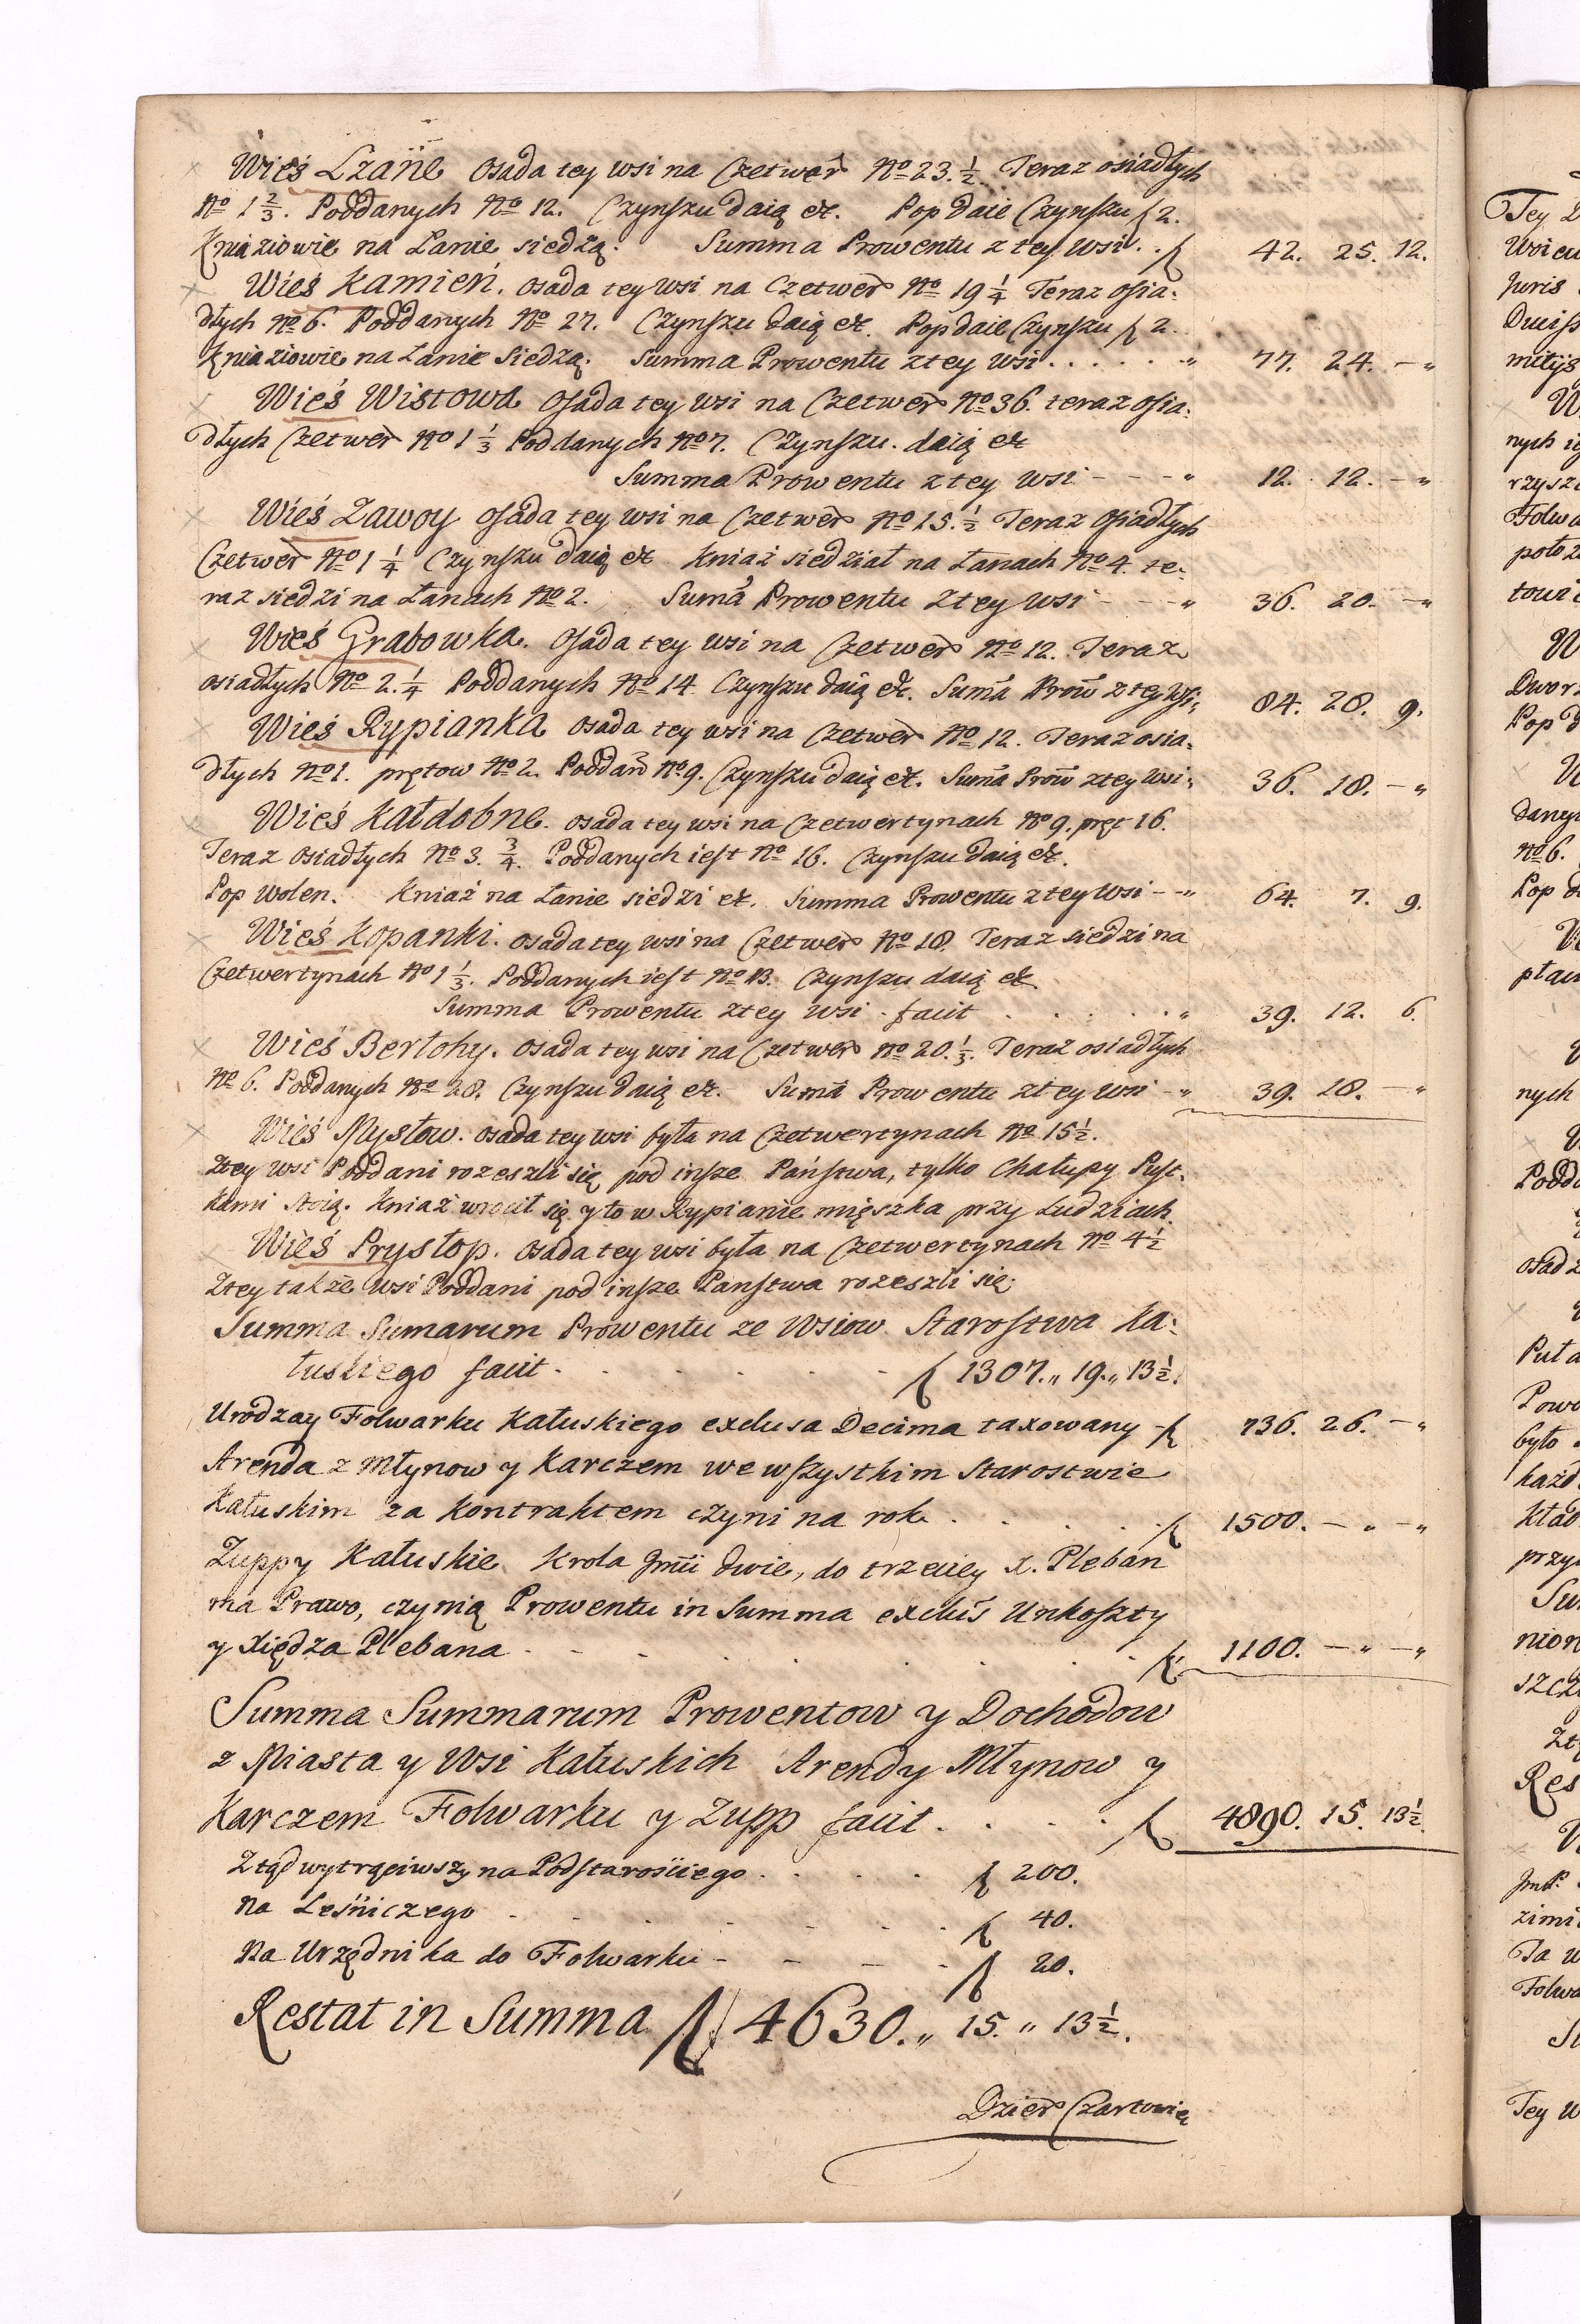 Wieś Lzańe Osada tey wsi na Czetwer No 23. 1/2. Teraz osiadłych
No 1 2/3. Poddanych No 12. Czynszu daią &. Pop daie Czynszu f 2.
Kniaziowie na Łanie siedzą. Summa Prowentu z tey wsi . . f 42. 25. 12.
Wieś Kamień. osada tey wsi na Czetwer No 19 1/4 Teraz osia:
dłych No 6. Poddanych No 27. Czynszu daią &. Pop daie Czynszu f 2.
Kniaziowie na Łanie Siedzą. Summa Prowentu z tey wsi . . . . . " 77. 24. - "
Wieś Wistowa Osada tey wsi na Czetwer No 36. teraz osia:
dłych Czetwer No 1 1/3 Poddanych No 7. Czynszu. daią &
Summa Prowentu z tey wsi - - - " 12. 12. - "
Wieś Zawoy osada tey wsi na Czetwer No 15. 1/2 Teraz Osiadłych
Czetwer No 1 1/4 Czynszu daią & Kniaź siedział na Łanach No 4. te:
raz siedzi na Łanach No 2. Suma Prowentu z tey wsi - - " 36. 20. - "
Wieś Grabowka. Osada tey wsi na Czetwer No 12. Teraz
osiadłych No 2. 1/4 Poddanych No 14 Czynszu daią &. Suma Prow z tey wsi " 84. 28. 9.
Wieś Rypianka osada tey wsi na Czetwer No 12. Teraz osia:
dłych No 1. prętow No 2. Poddan No 9. Czynszu daią &. Suma Prow z tey wsi " 36. 18. - "
Wieś Kałdobne. osada tey wsi na Czetwertynach No 9. pręt 16.
Teraz osiadłych No 3. 3/4. Poddanych iest No 16. Czynszu daią &.
Pop Wolen. Kniaź na Łanie siedzi &. Summa Prowentu z tey wsi - " 64. 7. 9.
Wieś Kopanki. osada tey wsi na Czetwer No 18. Teraz siedzi na
Czetwertynach No 1 1/3. Poddanych iest No 13. Czynszu daią &
Summa Prowentu z tey wsi . facit . . . . . " 39. 12. 6.
Wieś Berłohy. osada tey wsi na Czetwer No 20. 1/3. Teraz osiadłych
No 6. Poddanych No 28. Czynszu daią &. Suma Prowentu z tey wsi - " 39. 18. - "
Wieś Mysłow. osada tey wsi była na Czetwertynach No 15 1/2.
Ztey wsi Poddani rozeszli się pod insze Państwa, tylko Chałupy Pust:
kami stoią. Kniaź wrocił się y to w Rypianie mięszka przy Ludziach.
Wieś Prysłop. osada tey wsi była na Czetwertynach No 4 1/2
Ztey także wsi Poddani pod insze Panstwa rozeszli się.
Summa Sumarum Prowentu ze Wsiow Starostwa Ka:
łuskiego facit . . . . . . f 1307. " 19. " 13 1/2.
Urodzay Folwarku Kałuskiego exclusa Decima taxowany - f 736. 26. - "
Arenda z Młynow y Karczem we wszystkim Starostwie
Kałuskim za Kontraktem czyni na rok . . . . . f 1500. - " - "
Żuppy Kałuskie Krola Jmci dwie, do trzeciey X. Pleban
ma Prawo, czynią Prowentu in Summa exclus Unkoszty
y Xiędza Plebana . . . . . . . . f 1100. - " - "
Summa Summarum Prowentow y Dochodow
z Miasta y Wsi Kałuskich Arendy Młynow y
Karczem Folwarku y Żupp facit . . . . f 4890. 15. 13 1/2.
Ztąd wytrąciwszy na Podstarościego . . . . f 200.
Na Leśniczego . . . . . . . f 40.
Na Urzędnika do Folwarku - - - - f 20.
Restat in Summa f 4630. " 15. " 13 1/2.
Dzier Czartowię